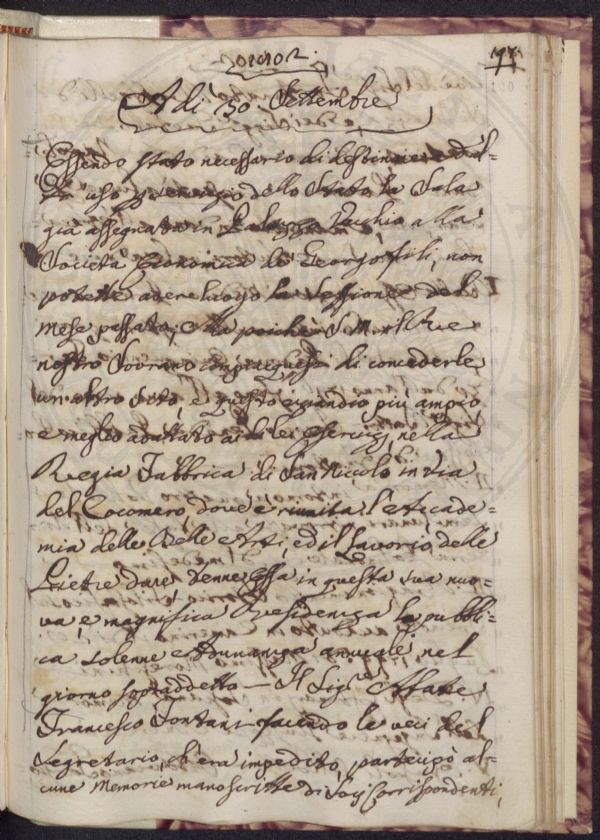 1802.
77
A di 30. Settembre
Essendo stato necessario di destinare ad al-
tr' uso in servizio dello Stato la Sala
già assegnata in Palazzo Vecchio alla
Società Economica de Georgofili, non
potette avere luogo la Sessione del
mese passato; Ma poichè S. M. il Re
nostro Sovrano compiacquesi di concederle
un altro Sito, e questo eziandio più ampio,
e meglio adattato ai di lei esercizj, nella
Regia Fabbrica di San Niccolò in via
del Cocomero, dove è riunita l'Accade-
mia delle Belle Arti, ed il Lavorio delle
Pietre dure, tenne Essa in questa sua nuo-
va, e magnifica Residenza la pubbli-
ca solenne Adunanza annuale nel
giorno sopraddetto — Il Sig.r Abate
Francesco Fontani facendo le veci del
Segretario, ch'era impedito, partecipò al-
cune Memorie manoscritte di Socj Corrispondenti,